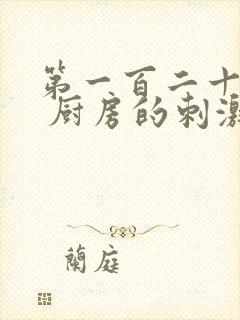 第一百二十
厨房的刺激
蘭庭